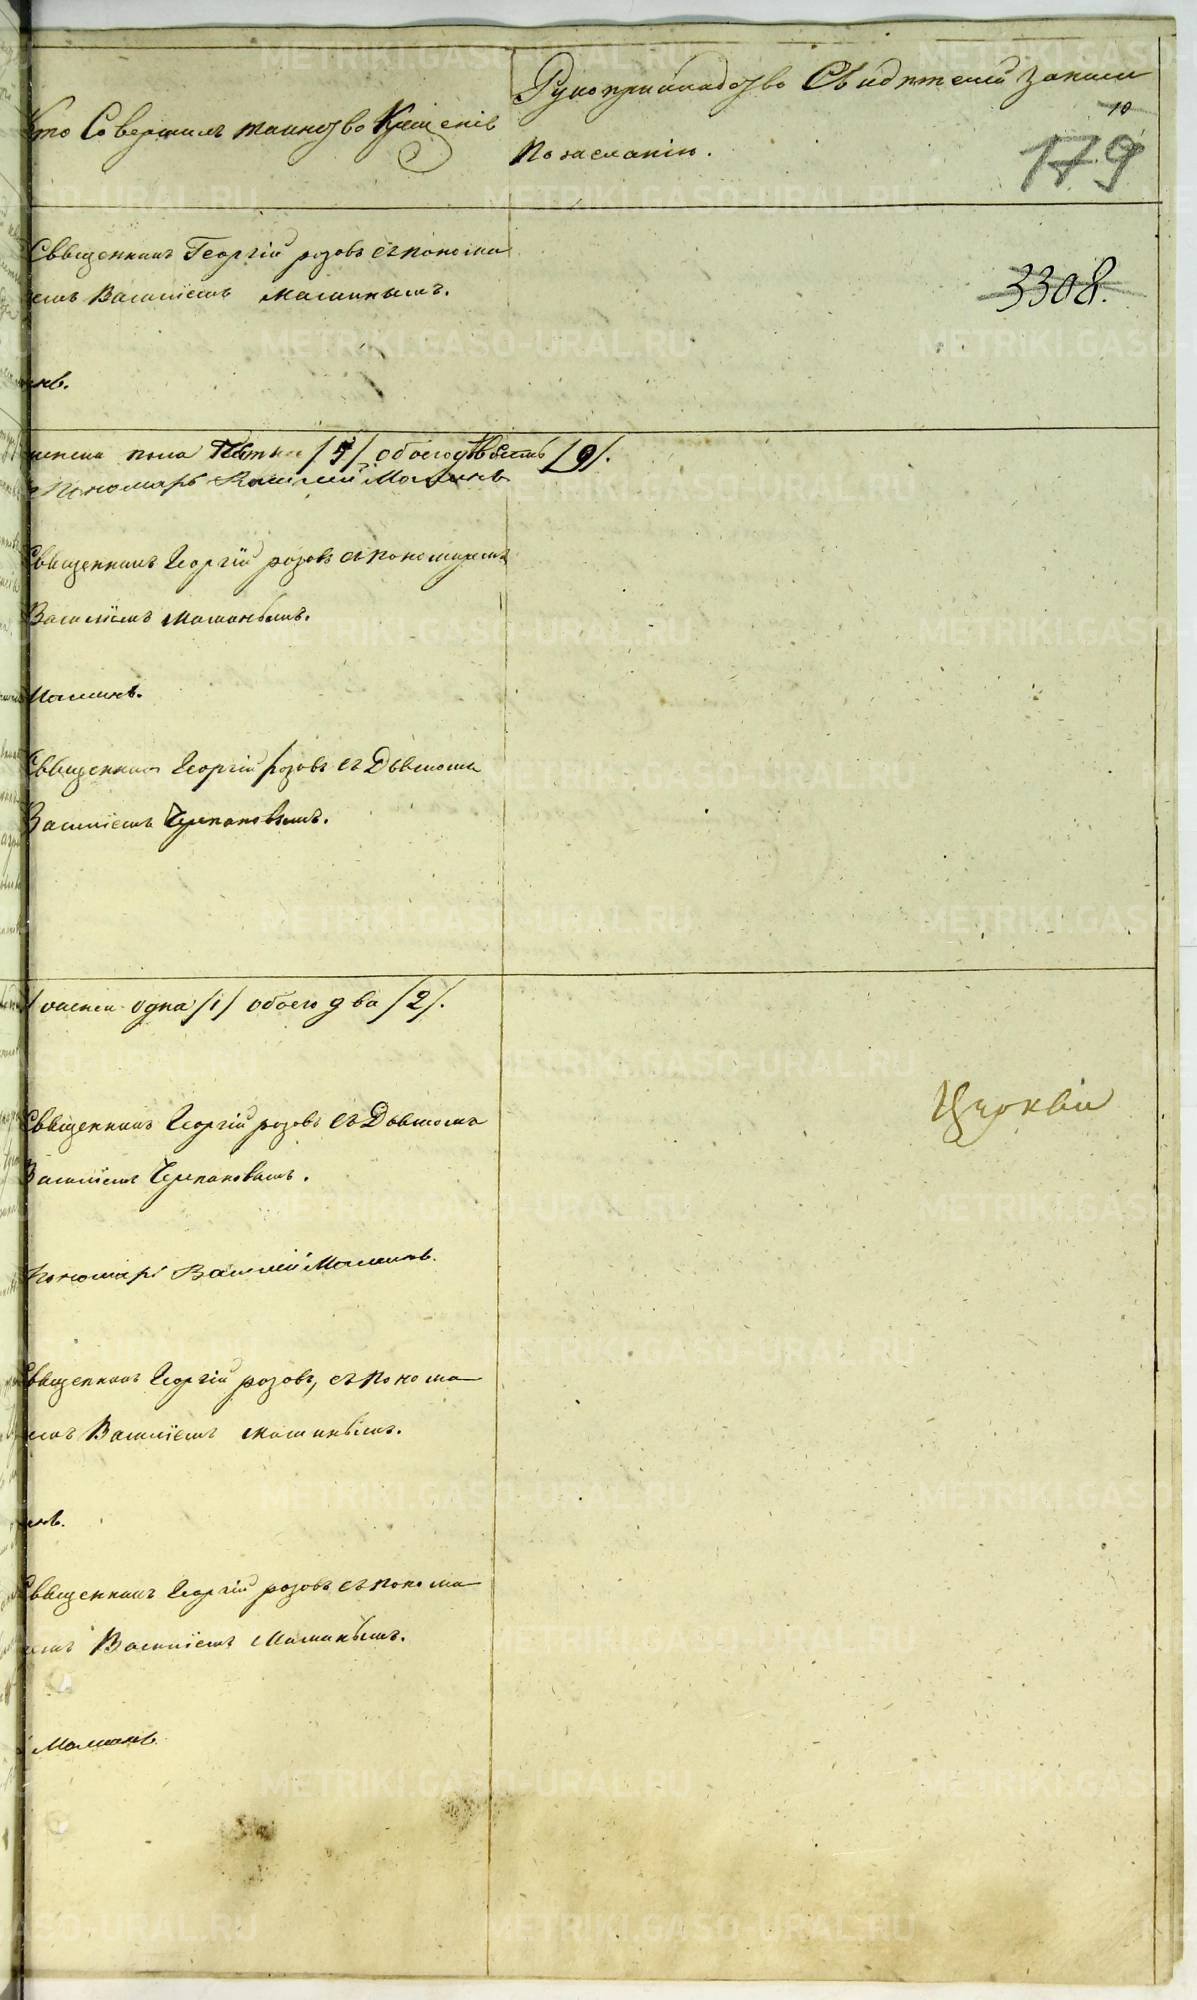 Кто Совершилъ таинство Крещенія
Рукоприкладство Свидѣтелей записи
по желанію.
10
179
Священникъ Георгій розовъ съ понома
емъ Василіемъ малинымъ.
3308.
инъ.
женска пола Пять /5/ обоего девять /9/.
Пономарь Василий Малинъ
Священникъ Георгій розовъ съ пономаремъ
Василіемъ малинымъ.
Малинъ.
Священникъ Георгій розовъ съ Дьякомъ
Василіемъ Черпановымъ.
женска одна /1/ обоего два /2/.
Церкви
Священникъ Георгій розовъ съ Дьякомъ
Василіемъ Черпановымъ.
Пономарь Василий Малинъ.
Священникъ Георгій розовъ, съ понома
емъ Василіемъ малинымъ.
инъ.
Священникъ Георгій розовъ съ понома
емъ Василіемъ Малинымъ.
Малинъ
METRIKI.GASO-URAL.RU